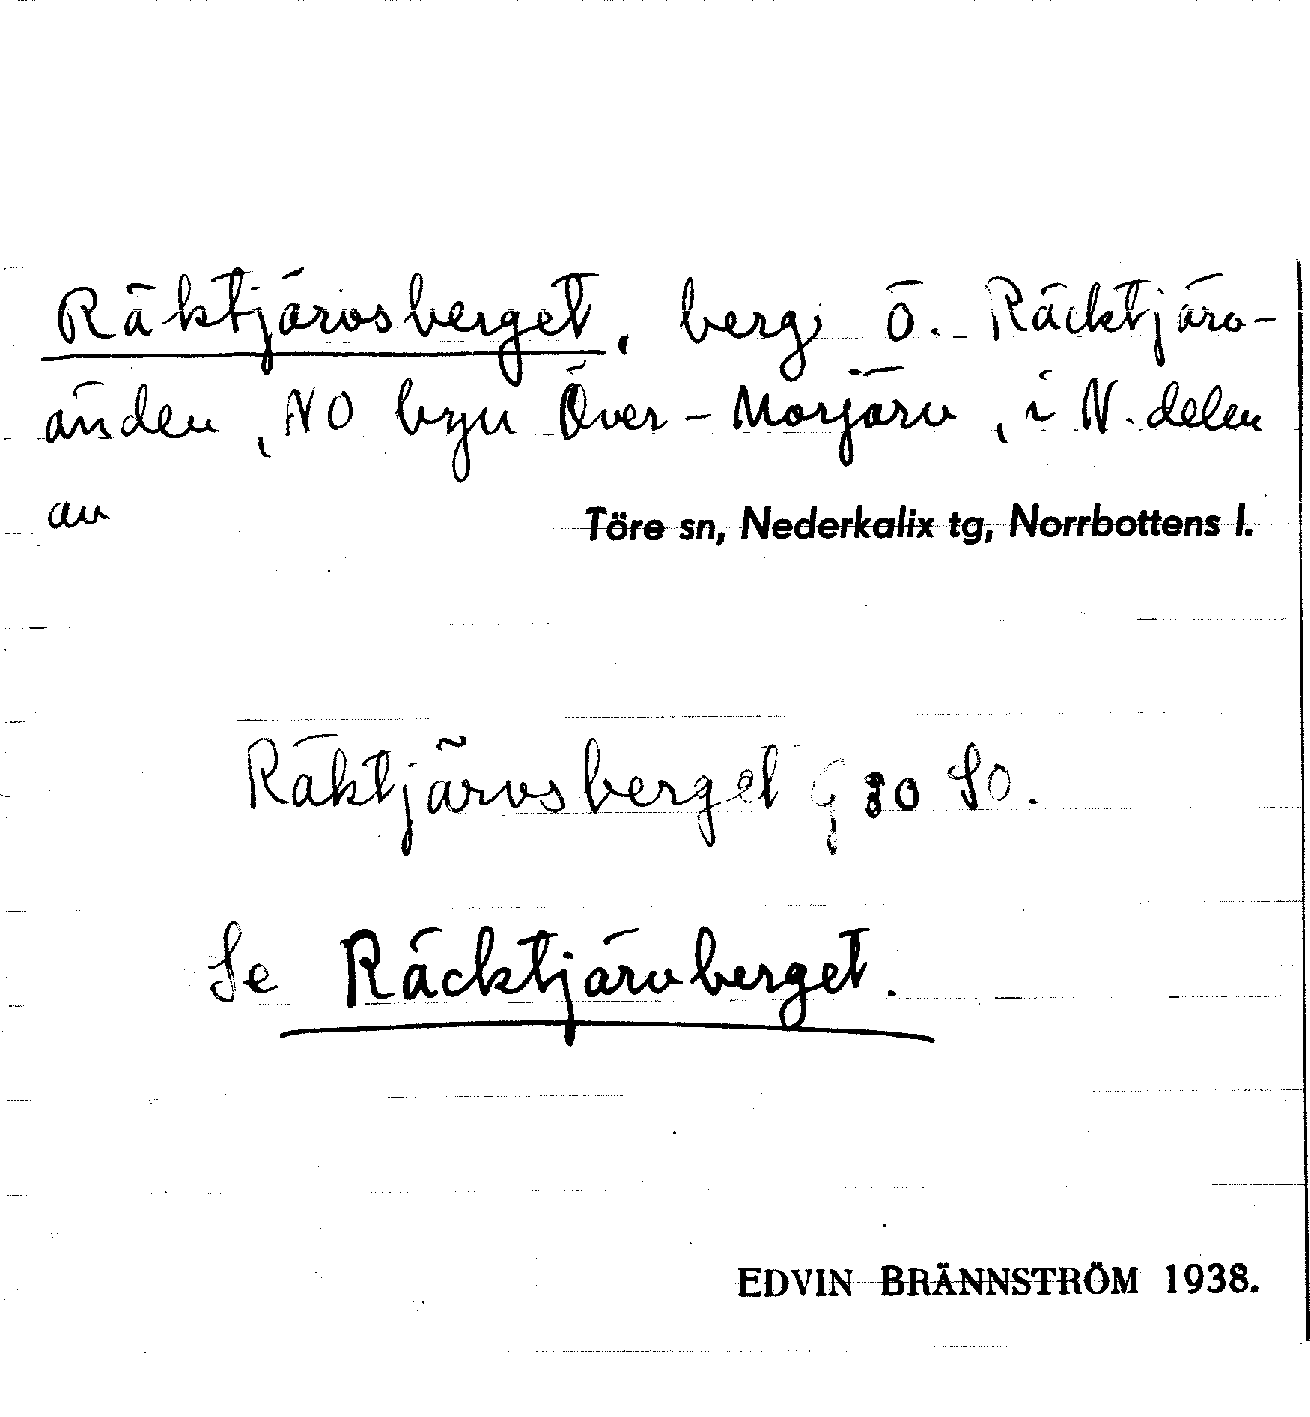 Räktjärvsberget, berg Ö. Räcktjärv-
änden, NO byn Över-Morjärv, i N. delen
av Töre sn, Nederkalix tg, Norrbottens l.
Räktjärvsberget G 30 SO.
Se Räcktjärvberget.
EDVIN BRÄNNSTRÖM 1938.